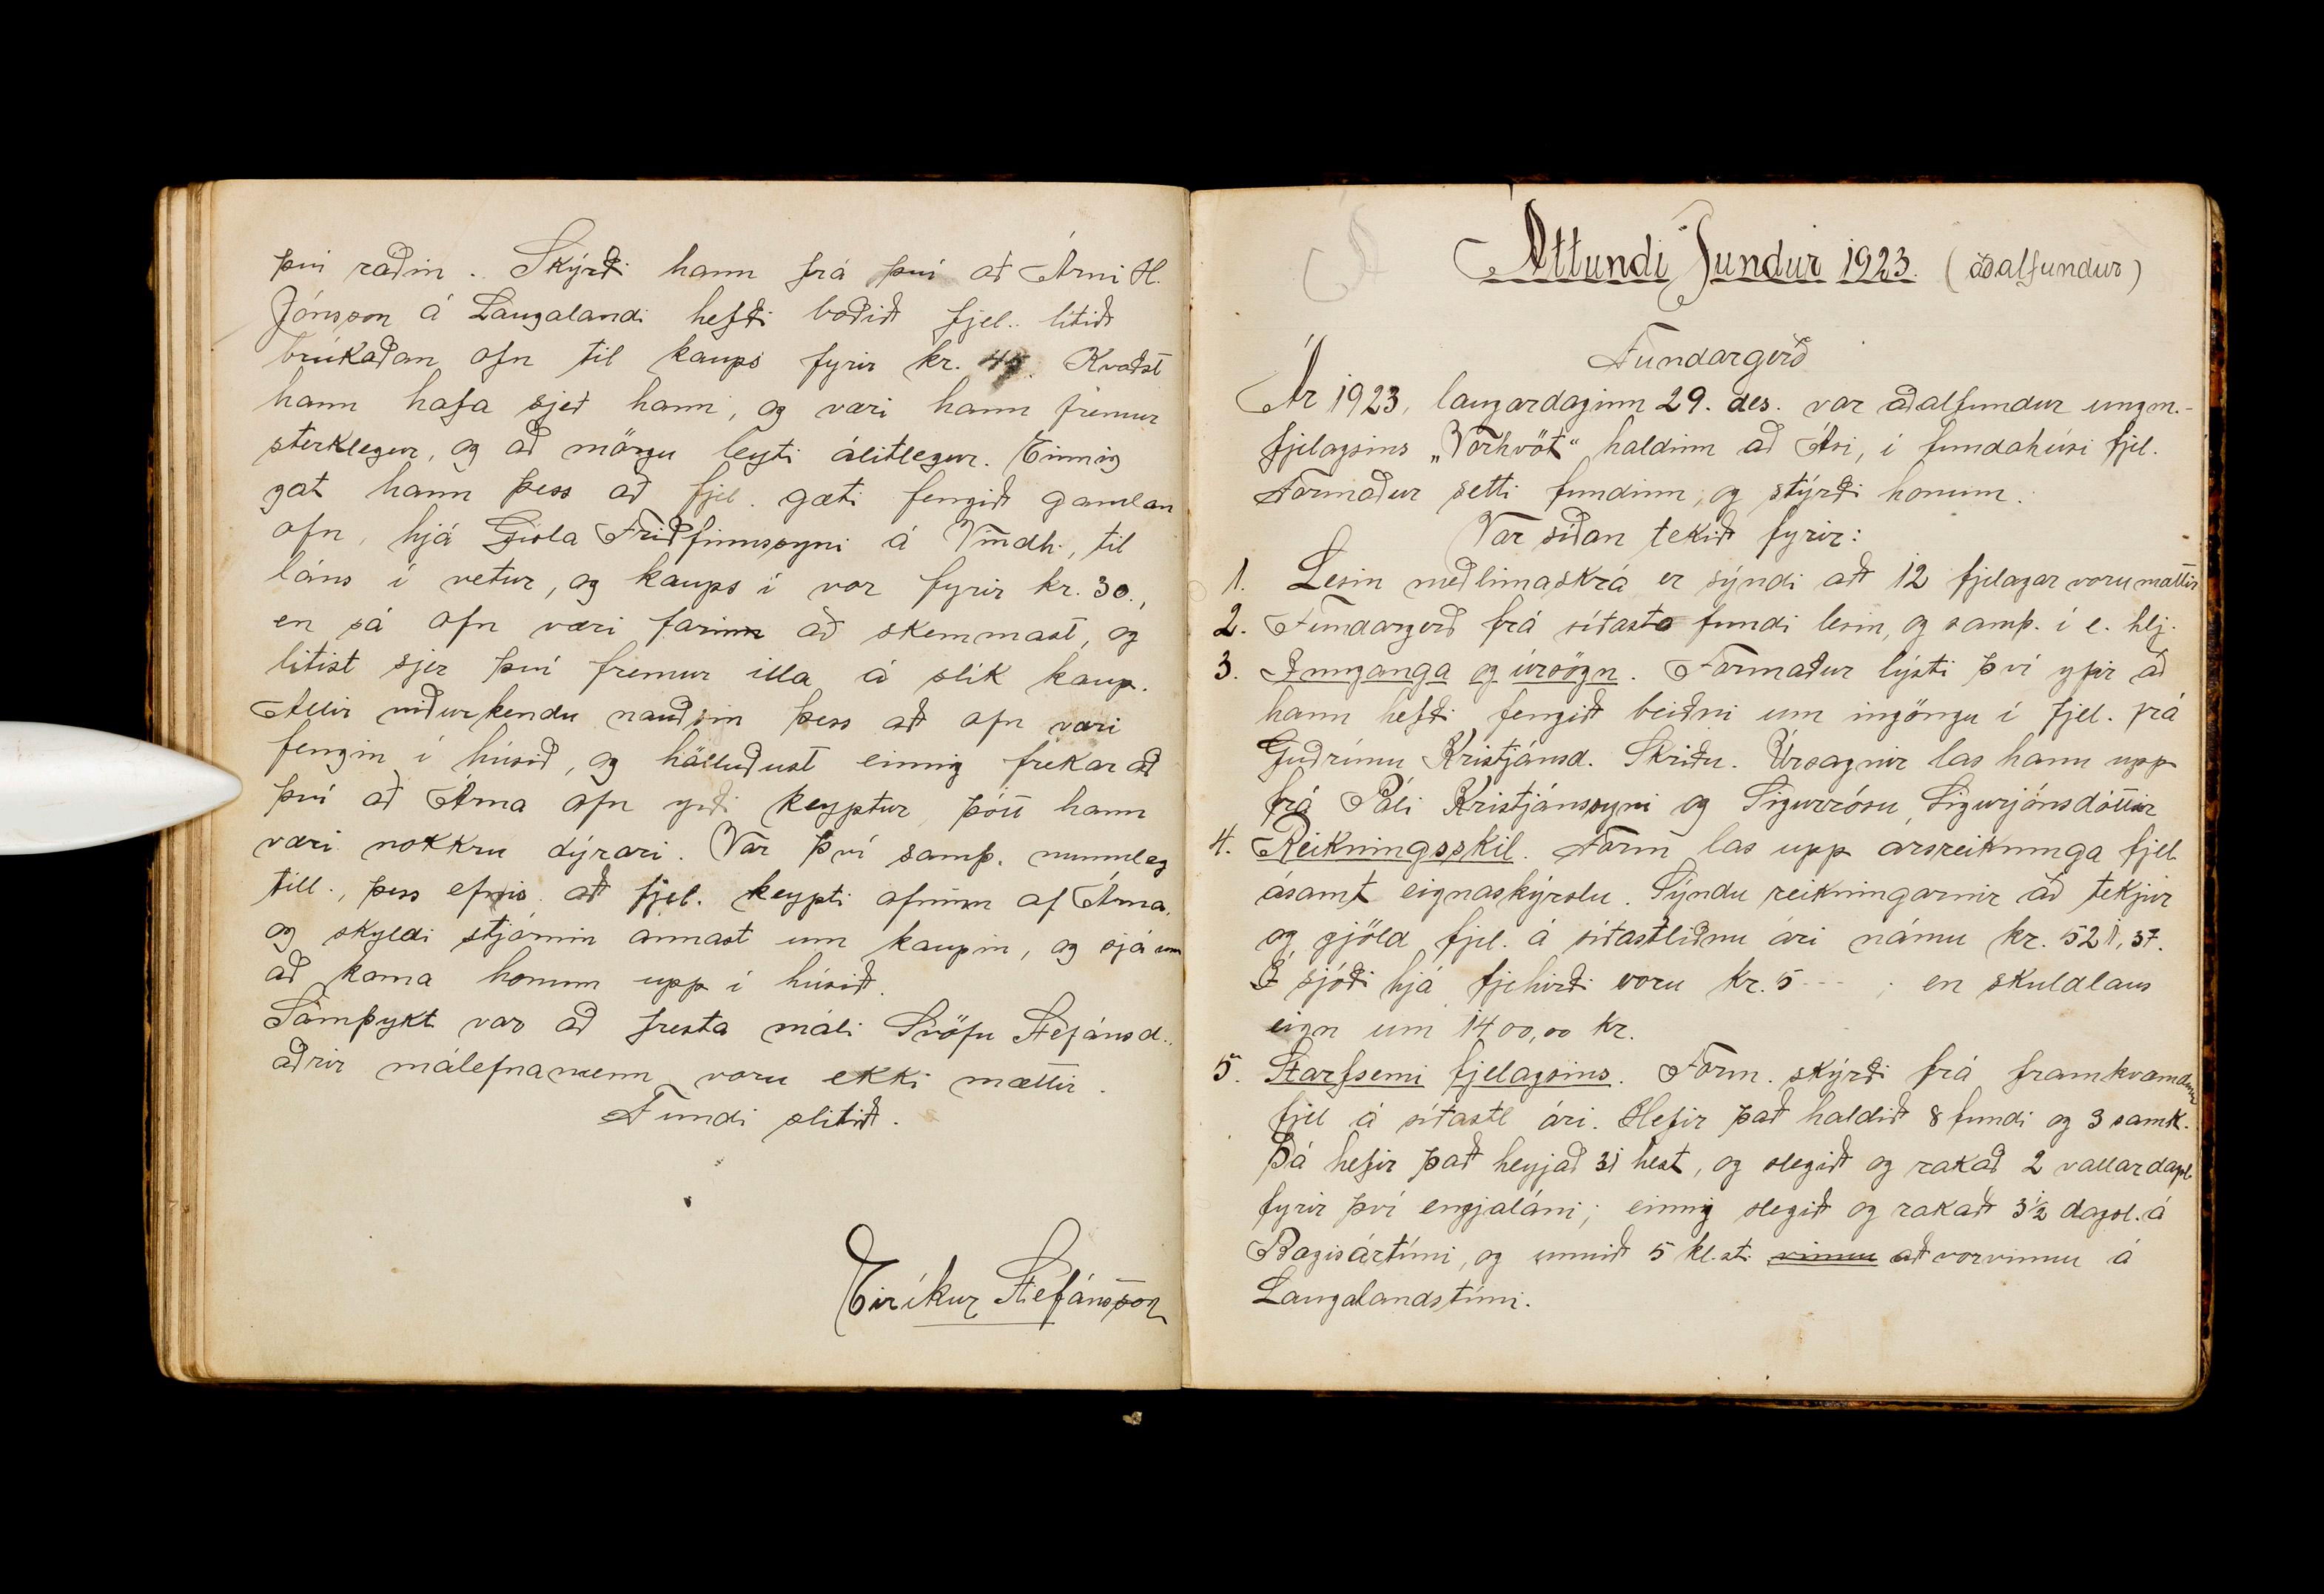 því ráðin. Skýrði hann frá því að Árni H.
Jónsson á Laugalandi hefði boðið fjel. lítið
brúkaðan ofn til kaups fyrir kr. 45. Kvaðst
hann hafa sjeð hann, og væri hann fremur
sterklegur, og að mörgu leyti álitlegur. Einnig
gat hann þess að fjel. gæti fengið gamlan
ofn, hjá Gísla Friðfinnssyni á Vindh., til
láns í vetur, og kaups í vor fyrir kr. 30.,
en sá ofn væri farinn að skemmast, og
litist sjer því fremur illa á slík kaup.
Allir viðurkendu nauðsin þess að ofn væri
fengin í húsið, og hölluðust einnig frekar að
því að Árna ofn yrði keyptur, þótt hann
væri nokkru dýrari. Var því samþ. munnleg
till., þess efnis að fjel. keypti ofninn af Árna,
og skyldi stjórnin annast um kaupin, og sjá um
að koma honum upp í húsið.
Samþykt var að fresta máli Svöfu Stefánsd.,
aðrir málefnamenn voru ekki mættir.
Fundi slitið.
Eiríkur Stefánsson
Áttundi fundur 1923. (aðalfundur)
Fundargerð
Ár 1923, laugardaginn 29. des. var aðalfundur ungm.-
fjelagsins „Vorhvöt“ haldinn að Ási, í fundahúsi fjel.
Formaður setti fundinn, og stýrði honum.
Var síðan tekið fyrir:
1. Lesin meðlimaskrá er sýndi að 12 fjelagar voru mættir
2. Fundargerð frá síðasta fundi lesin, og samþ. í e. hlj.
3. Innganga og úrsögn. Formaður lýsti því yfir að
hann hefði fengið beiðni um ingöngu í fjel. frá
Guðrúnu Kristjánsd. Skriðu. Úrsagnir las hann upp
frá Páli Kristjánssyni og Sigurrósu Sigurjónsdóttir
4. Reikningsskil. Form las upp arsreikninga fjel
ásamt eignaskýrslu. Sýndu reikningarnir að tekjur
og gjöld fjel. á síðastliðnu ári námu kr. 521,37.
Í sjóði hjá fjehirði voru kr. 5 --- ; en skuldlaus
eign um 1400,00 kr.
5. Starfsemi fjelagsins. Form. skýrði frá framkvæmdum
fjel á síðastl ári. Hefir það haldið 8 fundi og 3 samk.
Þá hefir það heyjað 31 hest, og slegið og rakað 2 vallardagsl.
fyrir því engjaláni; einnig slegið og rakað 3½ dagsl. á
Bægisártúni, og unnið 5 kl.st. vinnu að vorvinnu á
Laugalandstúni.